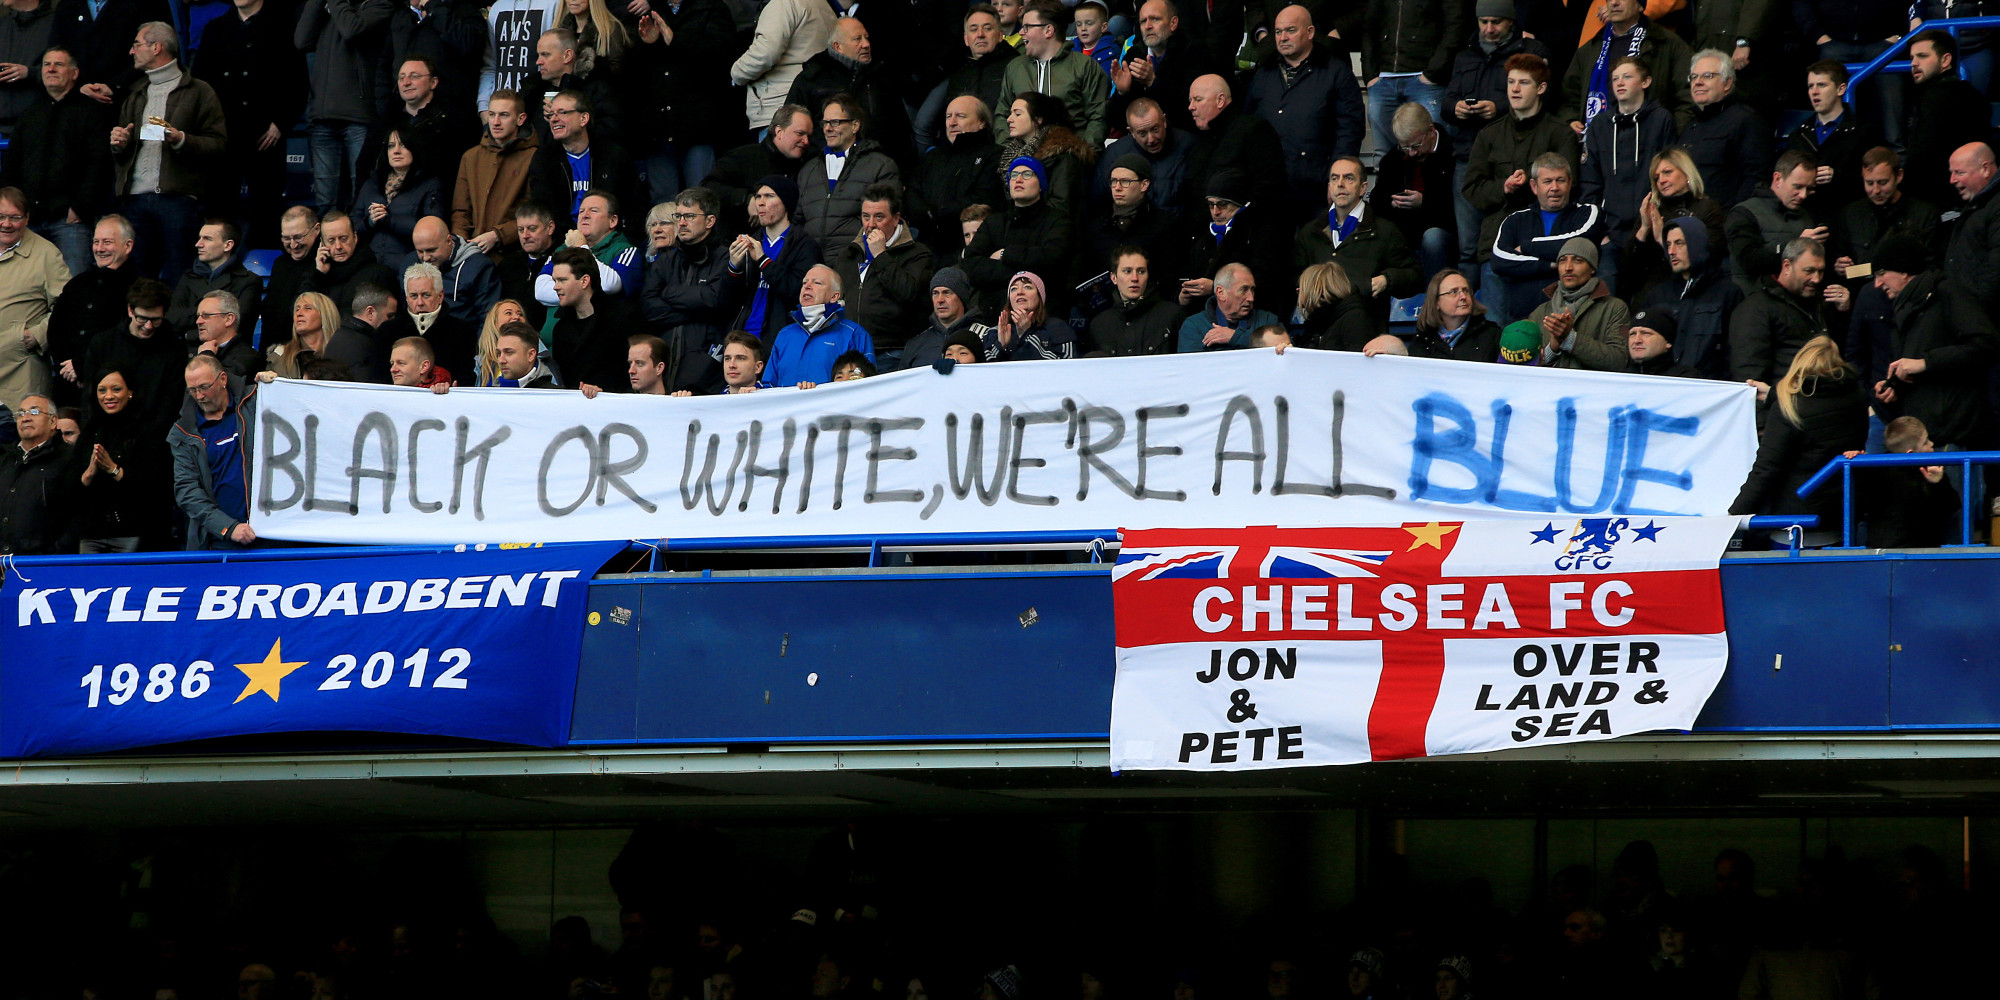 AMS
TER
DAM
161
BLACK OR WHITE, WE'RE ALL BLUE
HULK
KYLE BROADBENT
1986 2012
CFC
CHELSEA FC
JON
&
PETE
OVER
LAND &
SEA